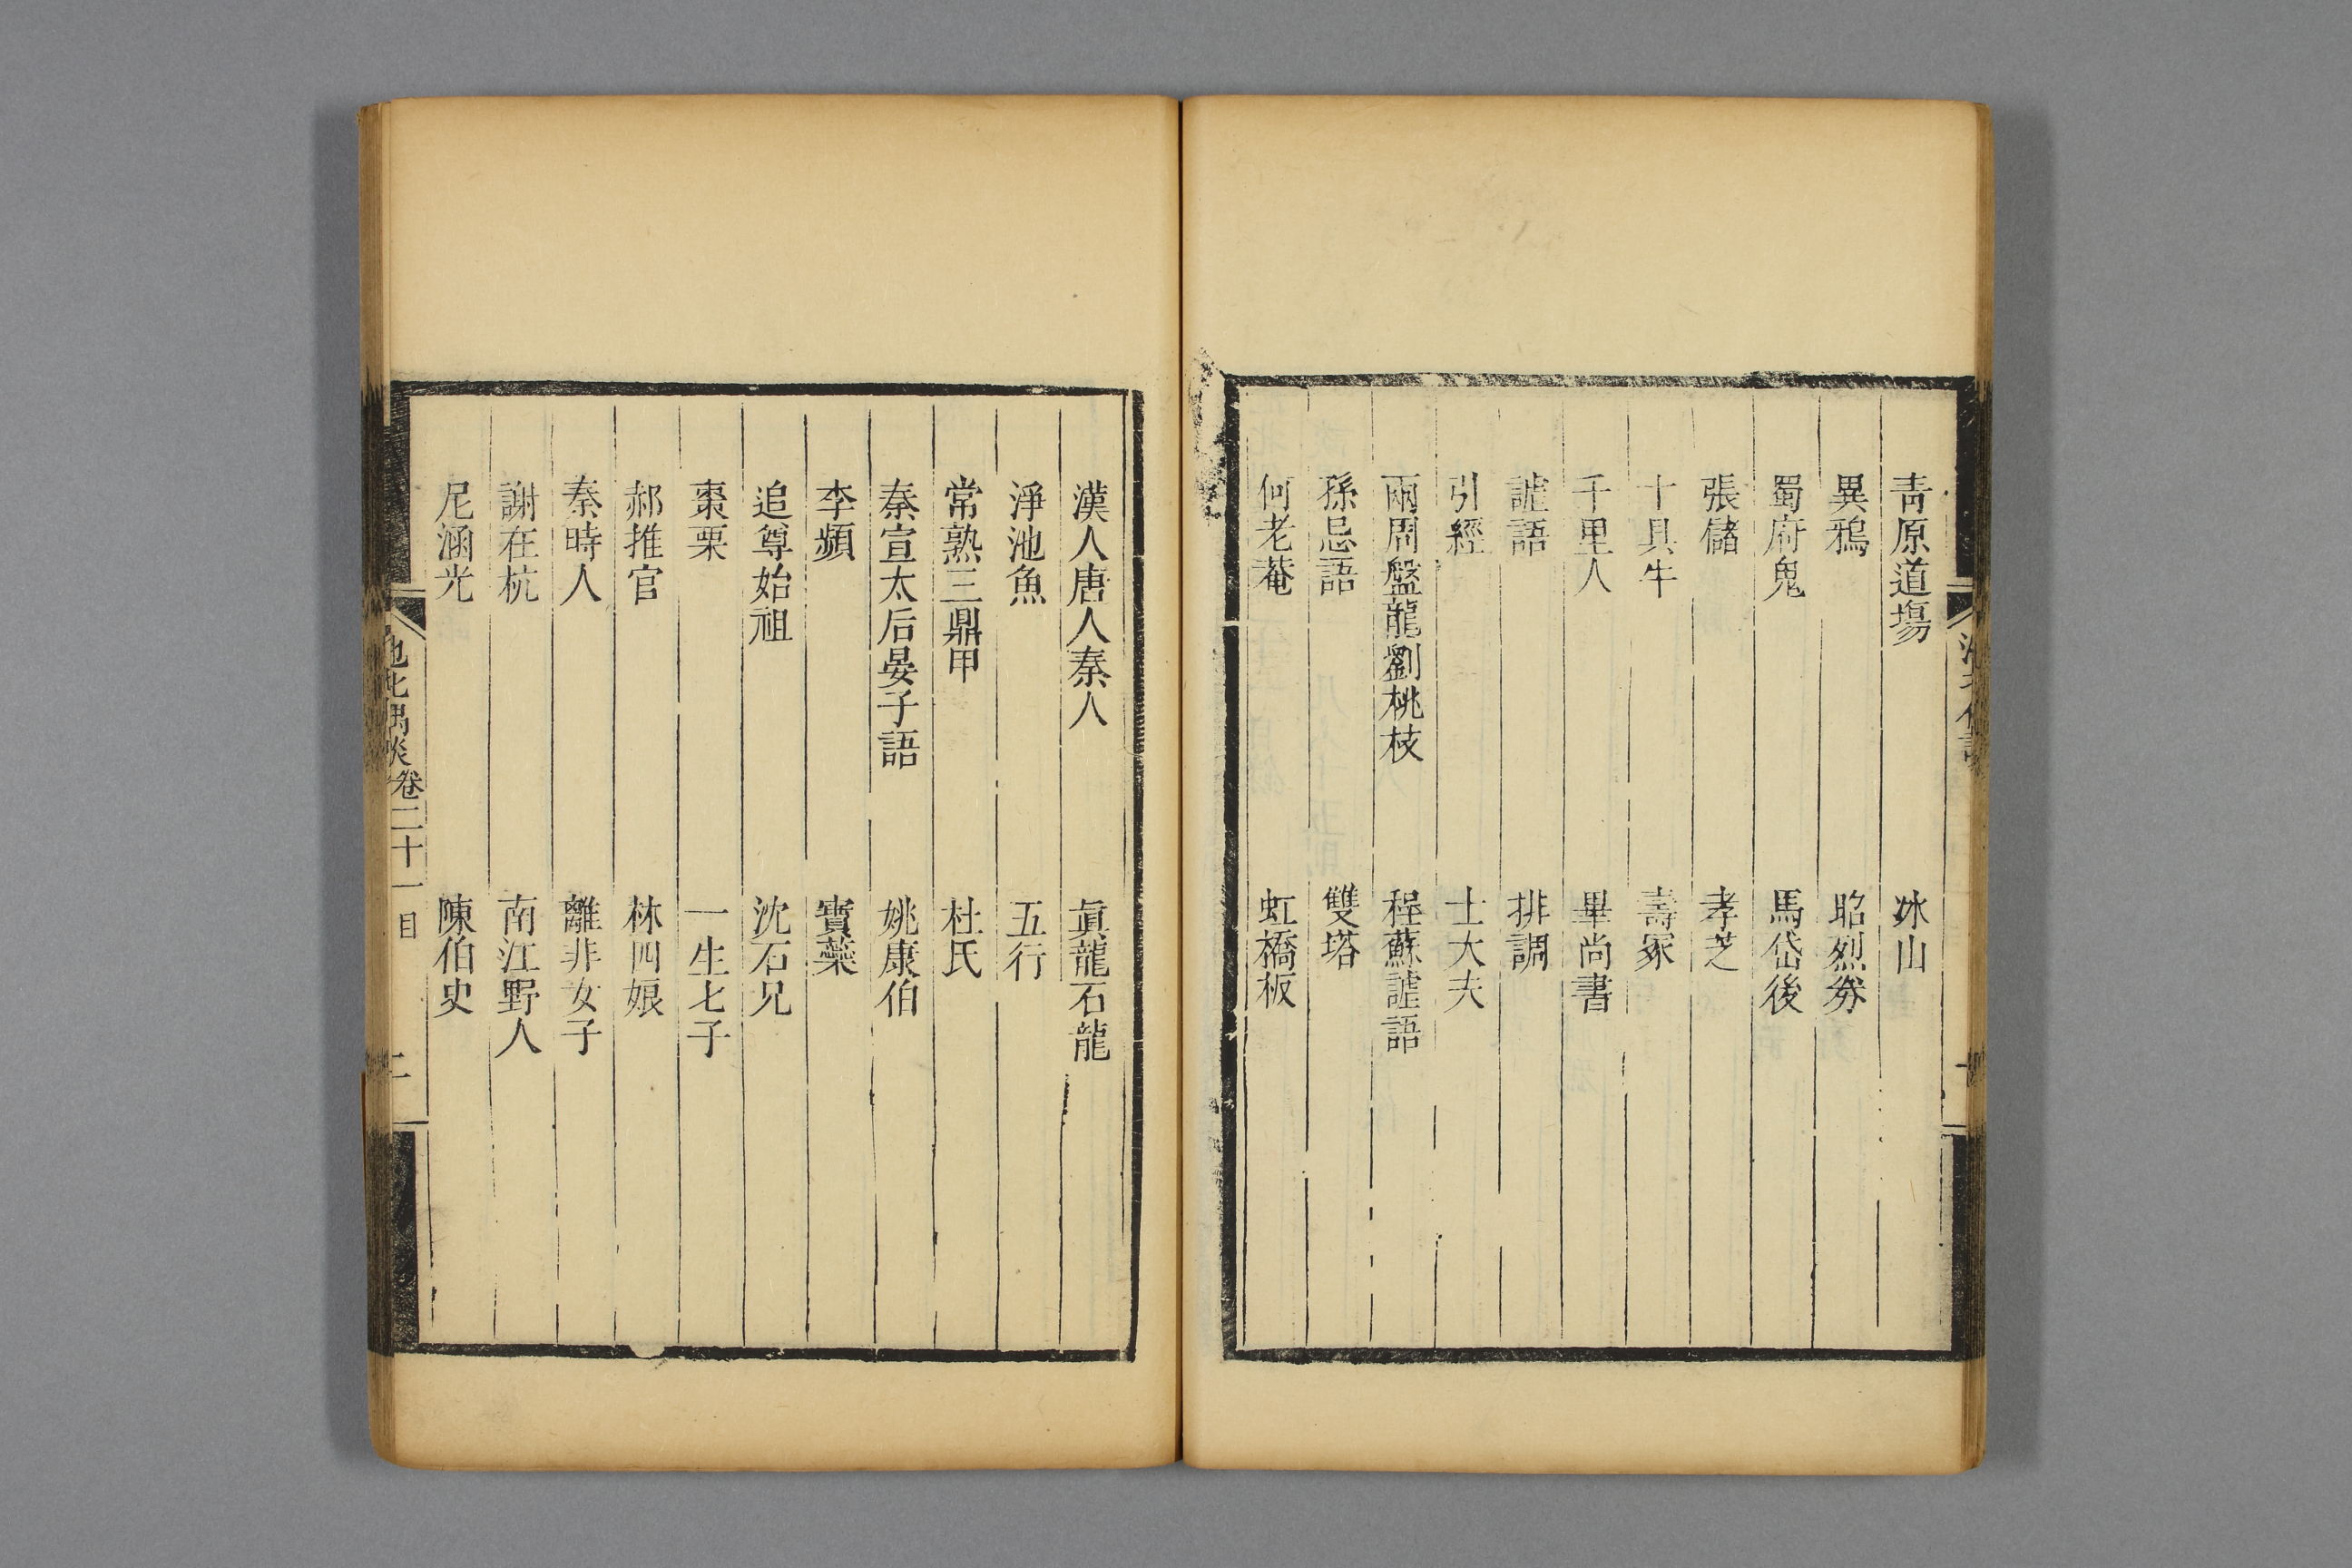 靑原道塲　冰山
異鴉　昭烈劵
蜀府鬼　馬岱後
張儲　孝芝
十具牛　壽冢
千里人　畢尚書
謔語　排調
引經　士大夫
兩周盤龍劉桃枝　程蘇謔語
孫忌語　雙塔
何老菴　虹橋板
漢人唐人秦人　眞龍石龍
淨池魚　五行
常熟三鼎甲　杜氏
秦宣太后晏子語　姚康伯
李頻　賣藥
追尊始祖　沈石兄
棗栗　一生七子
郝推官　林四娘
秦時人　離非女子
謝在杭　南江野人
尼涵光　陳伯史
池北偶談卷二十一　目　二